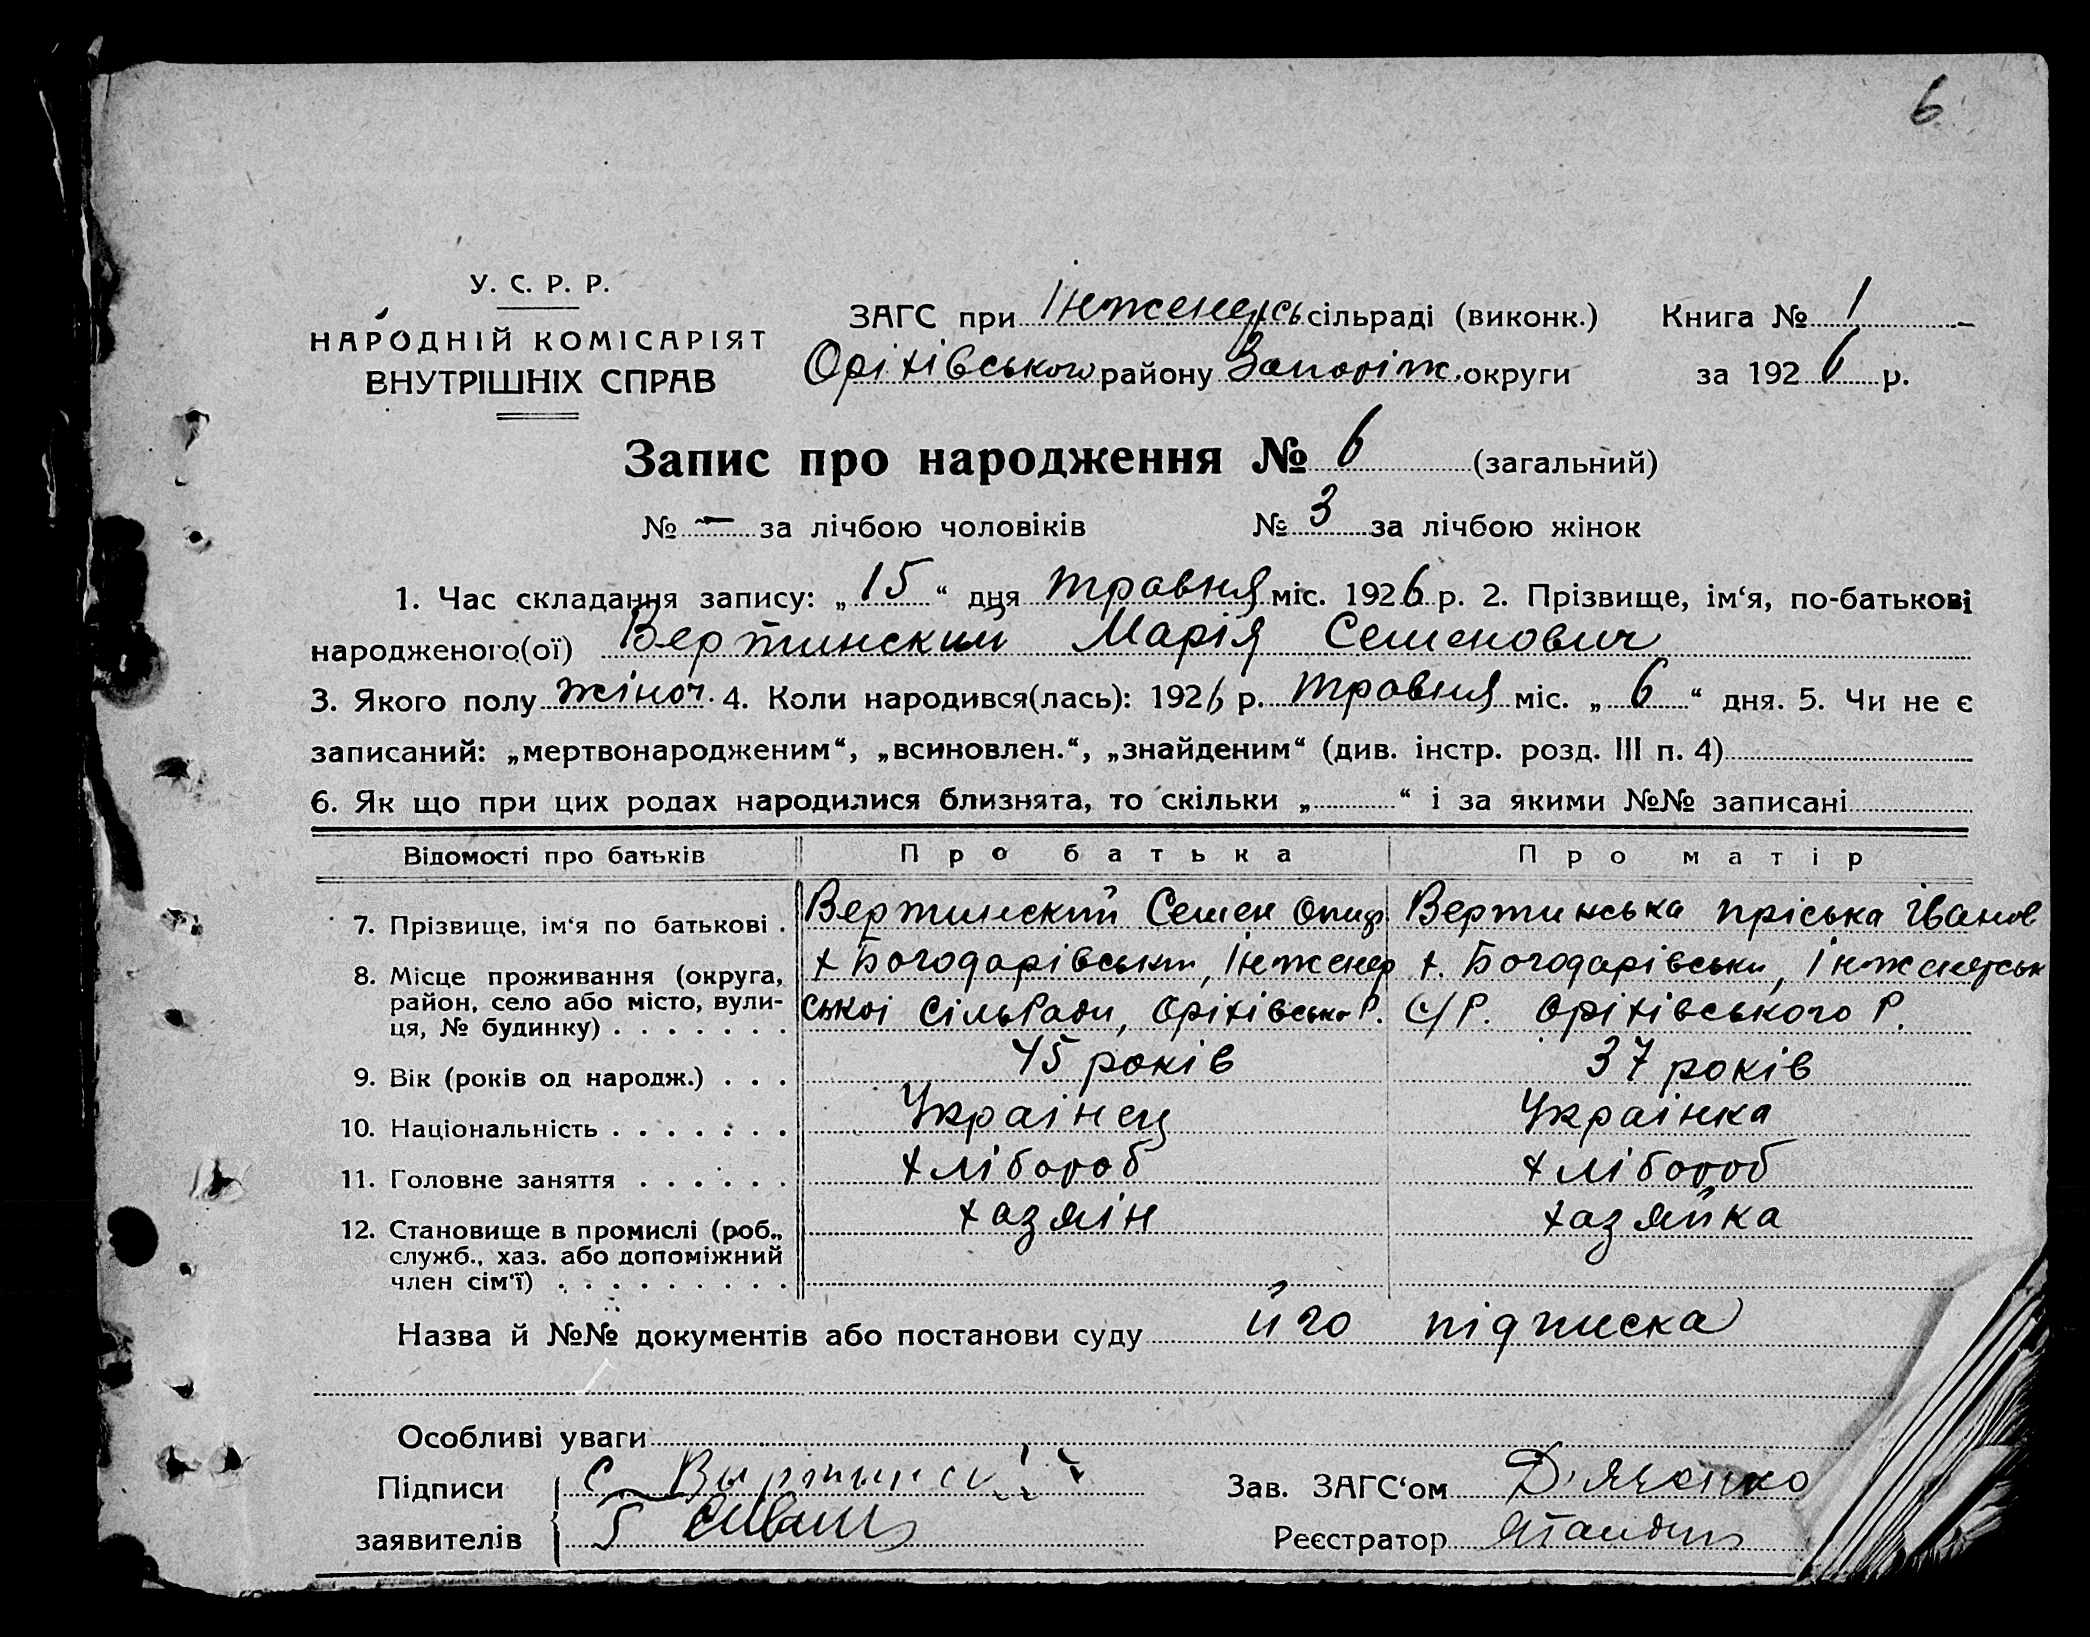 6
У. С. Р. Р.
НАРОДНІЙ КОМІСАРІЯТ
ВНУТРІШНІХ СПРАВ
ЗАГС при Інженерсь сільраді (виконк.) Книга № 1
Оріхівського району Запоріж. округи за 1926 р.
Запис про народження № 6 (загальний)
№ — за лічбою чоловіків № 3 за лічбою жінок
1. Час складання запису: „15“ дня травня міс. 1926 р. 2. Прізвище, ім‘я, по-батькові
народженого(ої) Вертинский Марія Семенович
3. Якого полу жіноч. 4. Коли народився(лась): 1926 р. травня міс. „6“ дня. 5. Чи не є
записаний: „мертвонародженим“, „всиновлен.“, „знайденим“ (див. інстр. розд. III п. 4)
6. Як що при цих родах народилися близнята, то скільки „ “ і за якими №№ записані
Відомості про батьків Про батька Про матір
7. Прізвище, ім‘я по батькові . Вертинский Семен Вертинська Пріська Іванов
8. Місце проживання (округа, х Богодарівськи, Інженер х. Богодарівськи, Інженерськ
район, село або місто, вули- ської СільРади, Оріхівсько Р. С/Р. Оріхівського Р.
ця, № будинку) . . . . . . .
9. Вік (років од народж.) . . . 45 років 37 років
10. Національність . . . . . . . Украінец Украінка
11. Головне заняття . . . . . . хлібороб хлібороб
12. Становище в промислі (роб., хазяін хазяйка
служб., хаз. або допоміжний
член сім‘ї) . . . . . . . . .
Назва й №№ документів або постанови суду його підписка
Особливі уваги
Підписи С Зав. ЗАГС‘ом Д‘яченко
заявителів Реєстратор